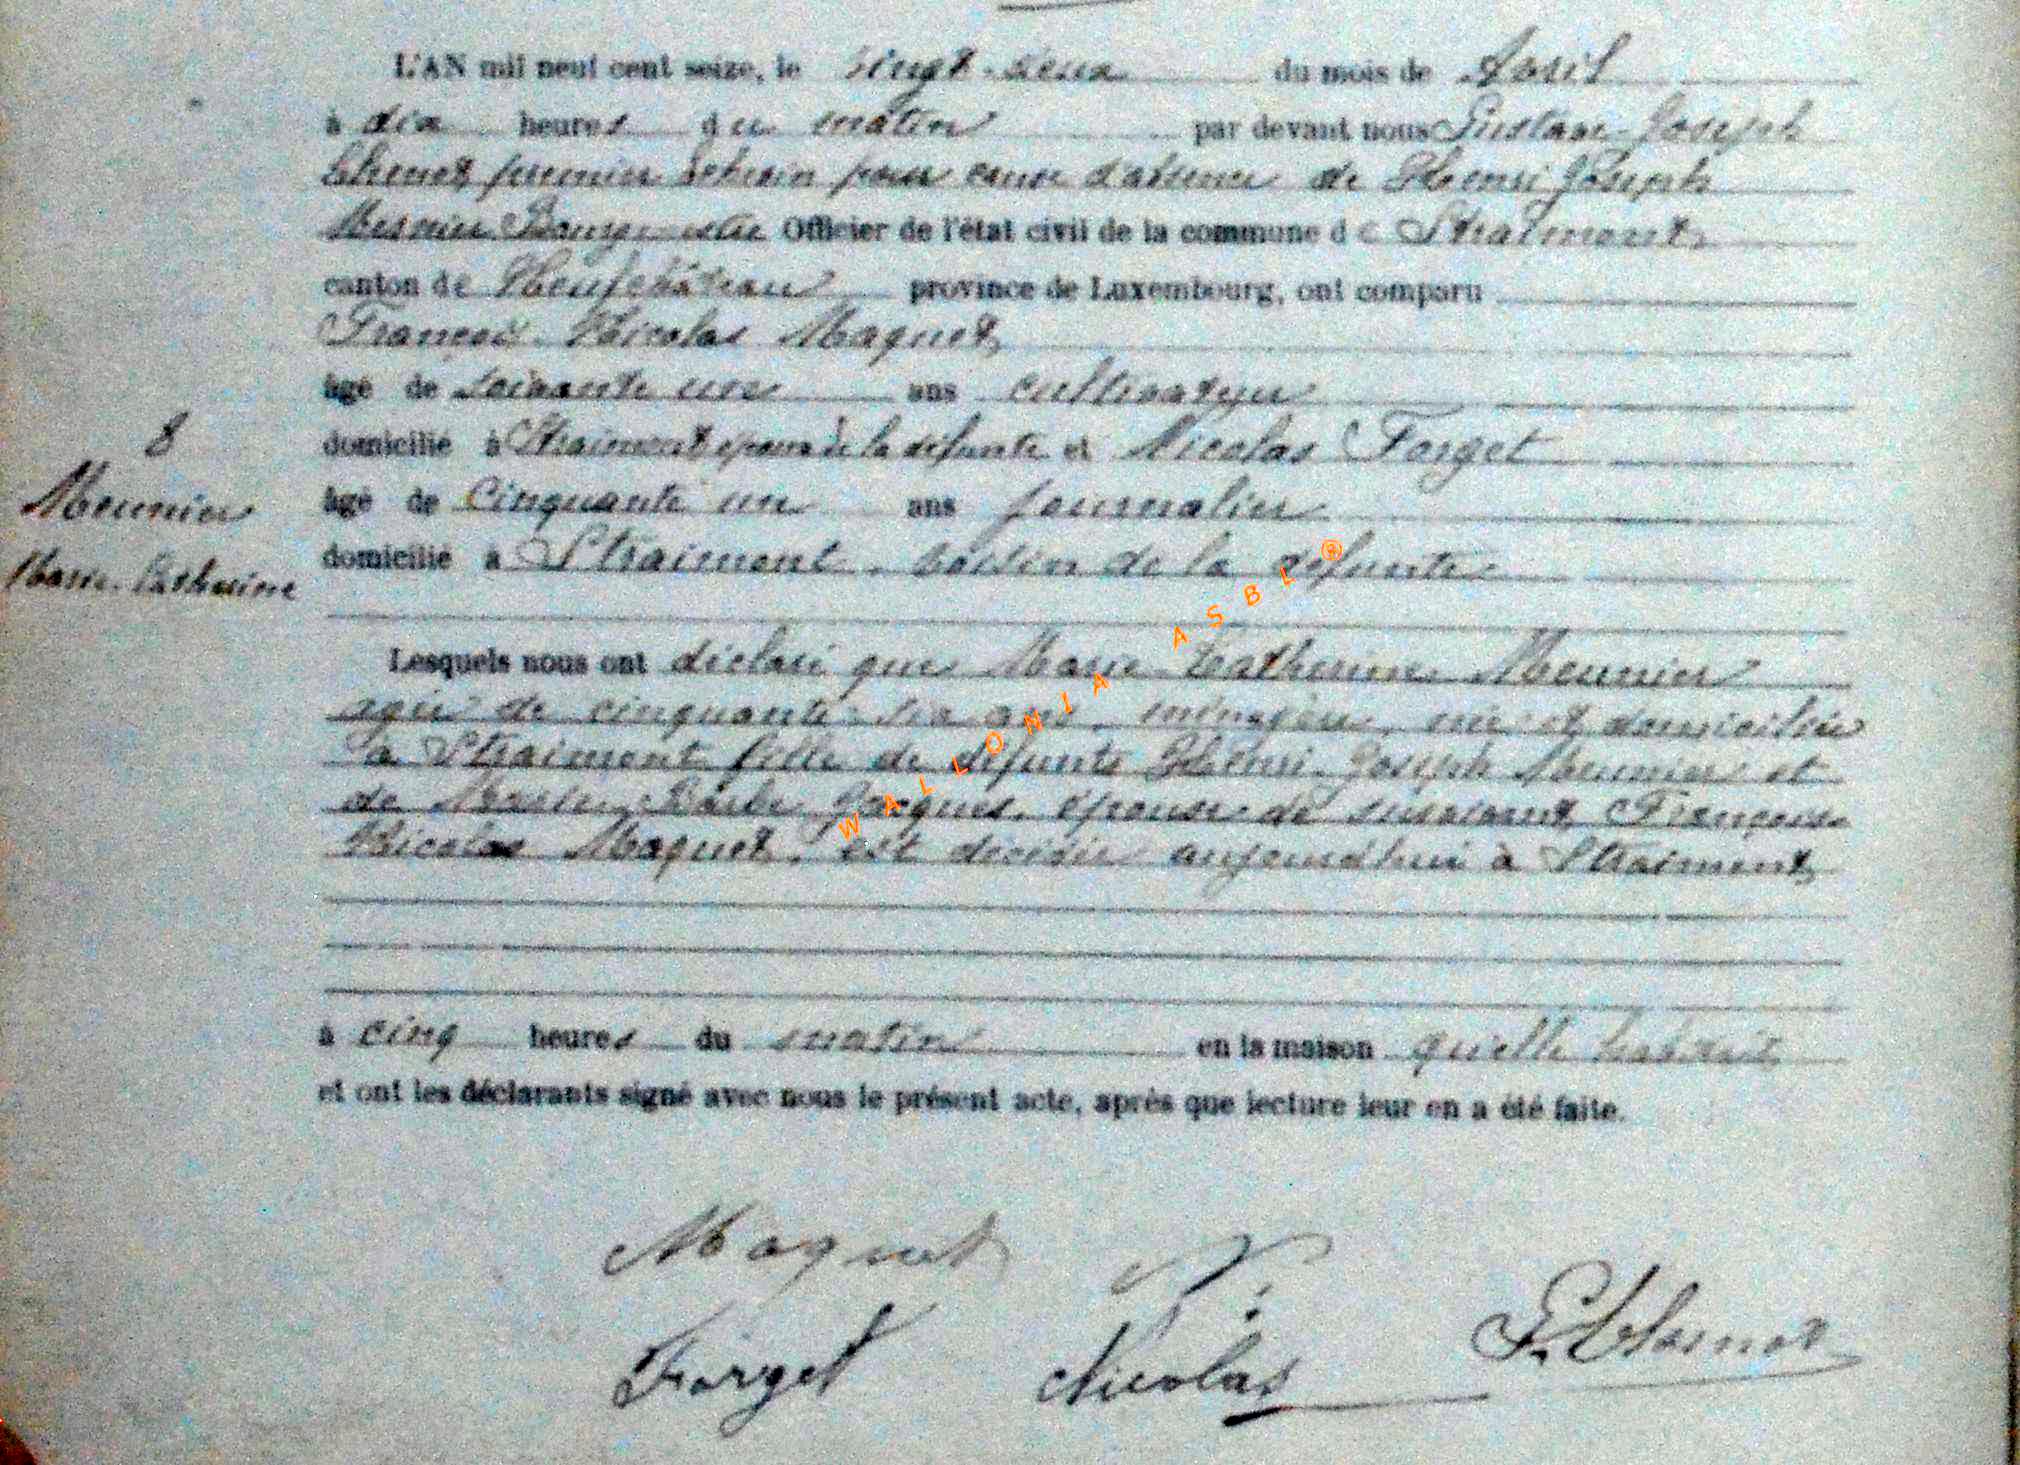 L'AN mil neuf cent seize, le vingt-deux du mois de Avril
à dix heures du matin par devant nous Gustave Joseph
premier Echevin pour cause d'absence de Henri Joseph
Bourgmestre Officier de l'état civil de la commune de Straimont
canton de Neufchâteau province de Luxembourg, ont comparu
François Nicolas Maquet
âgé de soixante un ans cultivateur
domicilié à Straimont époux de la défunte et Nicolas Forget
8
âgé de cinquante un ans journalier
Meunier
domicilié à Straimont, voisin de la défunte
Marie-Catherine
WALLONIA ASBL ®
Lesquels nous ont déclaré que Marie Catherine Meunier
agée de cinquante-six ans, ménagère, née et domiciliée
à Straimont fille de défunts Henri Joseph Meunier et
de Marie Barbe Jacques, épouse de survivant François
Nicolas Maquet, est décédée aujourd'hui à Straimont
à cinq heures du matin en la maison qu'elle habitait
et ont les déclarants signé avec nous le présent acte, après que lecture leur en a été faite.
Maquet N:
Forget Nicolas